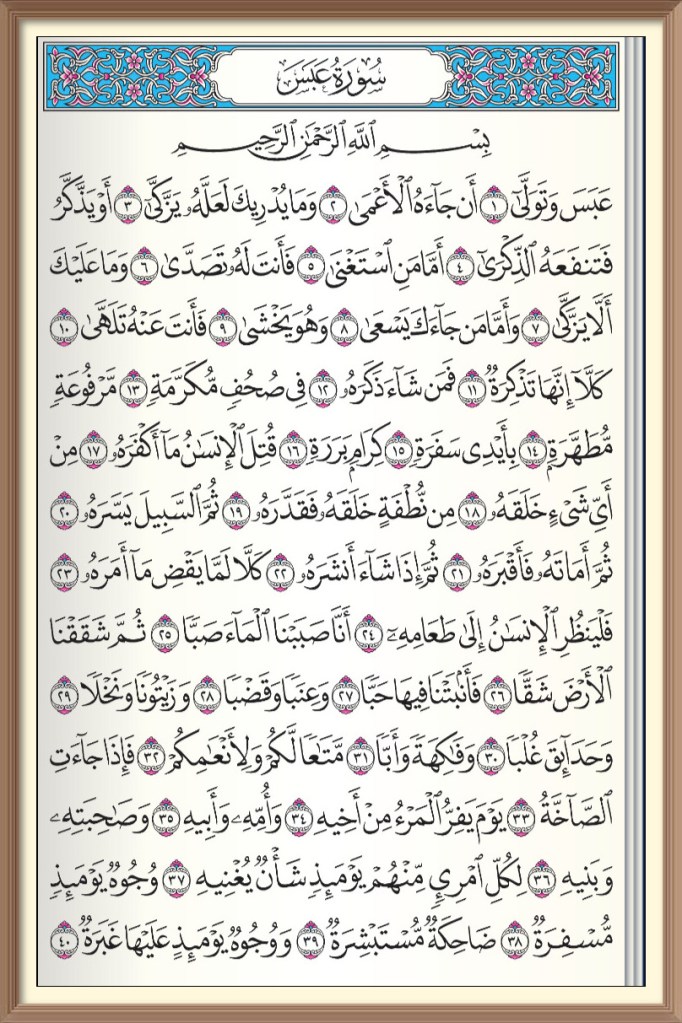 سُورَةُ عَبَسَ
بِسْمِ ٱللَّهِ ٱلرَّحْمَٰنِ ٱلرَّحِيمِ
عَبَسَ وَتَوَلَّىٰٓ ١ أَن جَآءَهُ ٱلْأَعْمَىٰ ٢ وَمَا يُدْرِيكَ لَعَلَّهُۥ يَزَّكَّىٰٓ ٣ أَوْ يَذَّكَّرُ
فَتَنفَعَهُ ٱلذِّكْرَىٰٓ ٤ أَمَّا مَنِ ٱسْتَغْنَىٰ ٥ فَأَنتَ لَهُۥ تَصَدَّىٰ ٦ وَمَا عَلَيْكَ
أَلَّا يَزَّكَّىٰ ٧ وَأَمَّا مَن جَآءَكَ يَسْعَىٰ ٨ وَهُوَ يَخْشَىٰ ٩ فَأَنتَ عَنْهُ تَلَهَّىٰ ١٠
كَلَّآ إِنَّهَا تَذْكِرَةٌ ١١ فَمَن شَآءَ ذَكَرَهُۥ ١٢ فِى صُحُفٍ مُّكَرَّمَةٍ ١٣ مَّرْفُوعَةٍ
مُّطَهَّرَةٍۭ ١٤ بِأَيْدِى سَفَرَةٍ ١٥ كِرَامٍۭ بَرَرَةٍ ١٦ قُتِلَ ٱلْإِنسَٰنُ مَآ أَكْفَرَهُۥ ١٧ مِنْ
أَىِّ شَىْءٍ خَلَقَهُۥ ١٨ مِن نُّطْفَةٍ خَلَقَهُۥ فَقَدَّرَهُۥ ١٩ ثُمَّ ٱلسَّبِيلَ يَسَّرَهُۥ ٢٠
ثُمَّ أَمَاتَهُۥ فَأَقْبَرَهُۥ ٢١ ثُمَّ إِذَا شَآءَ أَنشَرَهُۥ ٢٢ كَلَّا لَمَّا يَقْضِ مَآ أَمَرَهُۥ ٢٣
فَلْيَنظُرِ ٱلْإِنسَٰنُ إِلَىٰ طَعَامِهِۦٓ ٢٤ أَنَّا صَبَبْنَا ٱلْمَآءَ صَبًّا ٢٥ ثُمَّ شَقَقْنَا
ٱلْأَرْضَ شَقًّا ٢٦ فَأَنۢبَتْنَا فِيهَا حَبًّا ٢٧ وَعِنَبًا وَقَضْبًا ٢٨ وَزَيْتُونًا وَنَخْلًا ٢٩
وَحَدَآئِقَ غُلْبًا ٣٠ وَفَٰكِهَةً وَأَبًّا ٣١ مَّتَٰعًا لَّكُمْ وَلِأَنْعَٰمِكُمْ ٣٢ فَإِذَا جَآءَتِ
ٱلصَّآخَّةُ ٣٣ يَوْمَ يَفِرُّ ٱلْمَرْءُ مِنْ أَخِيهِ ٣٤ وَأُمِّهِۦ وَأَبِيهِ ٣٥ وَصَٰحِبَتِهِۦ
وَبَنِيهِ ٣٦ لِكُلِّ ٱمْرِئٍ مِّنْهُمْ يَوْمَئِذٍ شَأْنٌ يُغْنِيهِ ٣٧ وُجُوهٌ يَوْمَئِذٍ
مُّسْفِرَةٌ ٣٨ ضَاحِكَةٌ مُّسْتَبْشِرَةٌ ٣٩ وَوُجُوهٌ يَوْمَئِذٍ عَلَيْهَا غَبَرَةٌ ٤٠